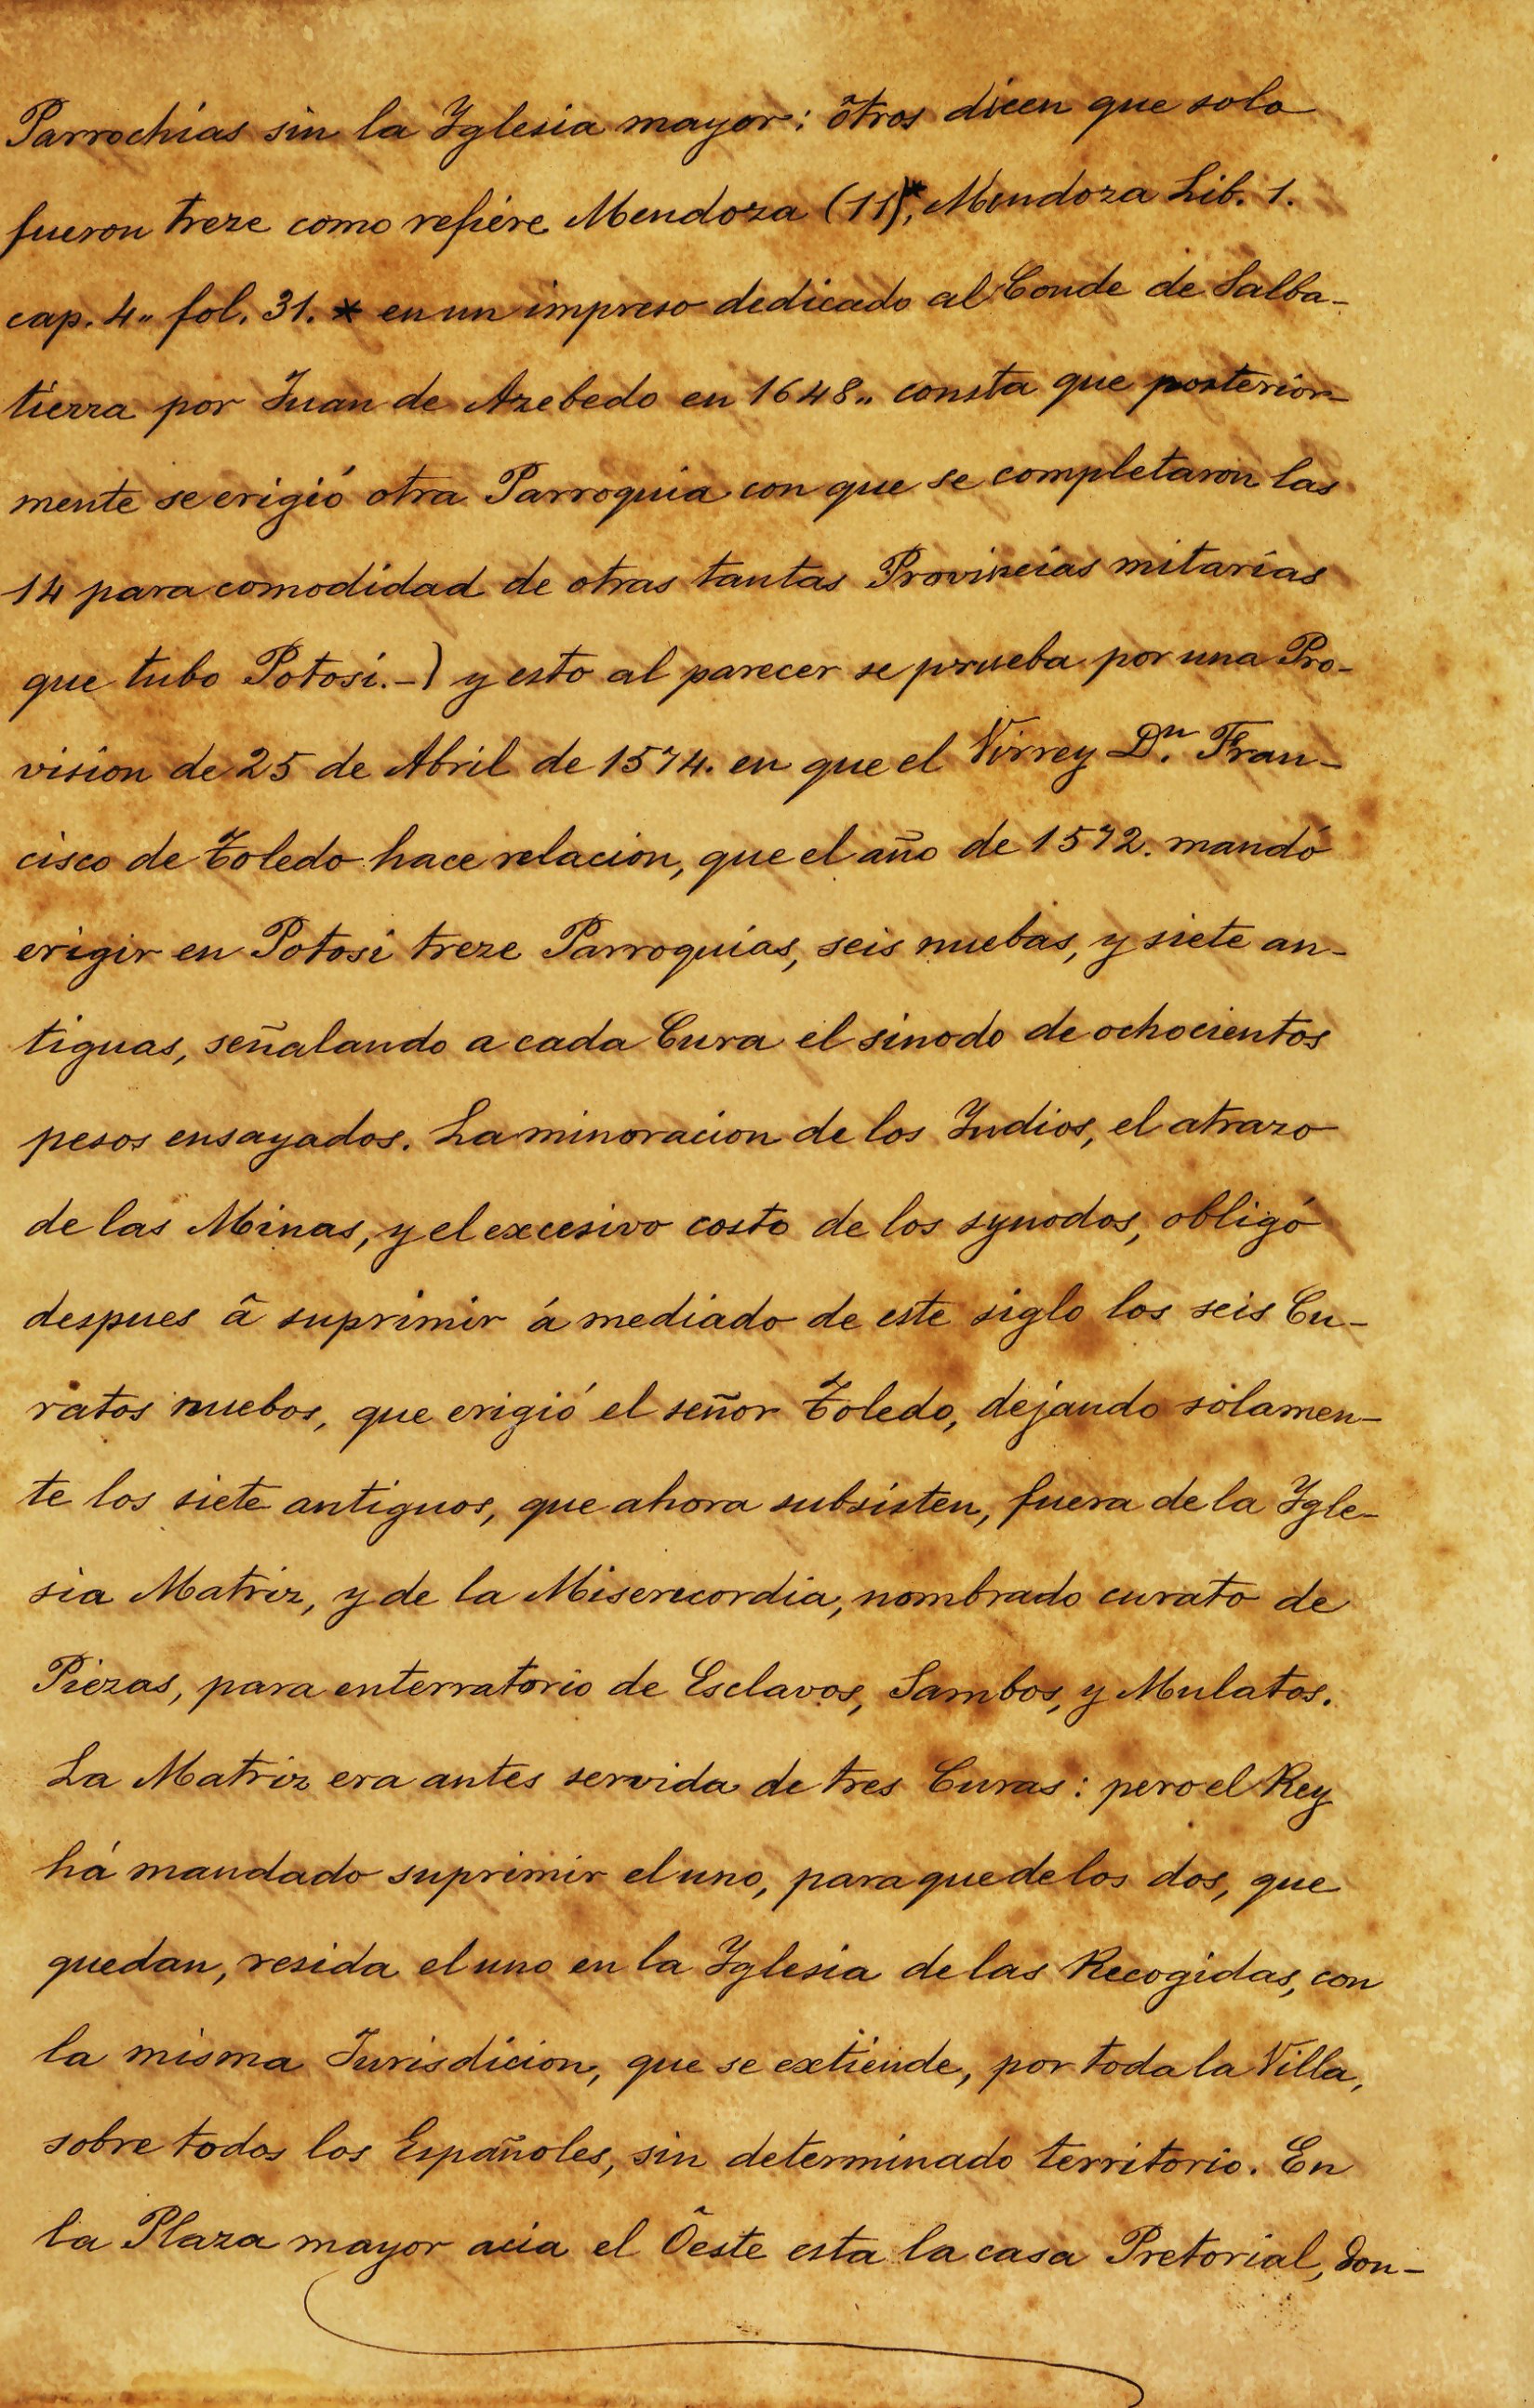 Parrochias sin la Yglesia mayor: ôtros dicen que solo
fueron treze como refiére Mendoza (11)*, Mendoza Lib. 1.
cap. 4,, fol. 31. * en un impreso dedicado al Conde de Salba-
tierra por Juan de Azebedo en 1648,, consta que posterior-
mente se erigió otra Parroquia con que se completaron las
14 para comodidad de otras tantas Provincias mitarias
que tubo Potosi.-) y esto al parecer se prueba por una Pro-
vision de 25 de Abril de 1574. en que el Virrey Dn. Fran-
cisco de Toledo hace relacion, que el año de 1572. mandó
erigir en Potosi treze Parroquias, seis nuebas, y siete an-
tiguas, señalando a cada Cura el sinodo de ochocientos
pesos ensayados. La minoracion de los Yndios, el atrazo
de las Minas, y el excesivo costo de los synodos, obligó
despues â suprimir á mediado de este siglo los seis Cu-
ratos nuebos, que erigió el señor Toledo, dejando solamen-
te los siete antiguos, que ahora subsisten, fuera de la Ygle-
sia Matriz, y de la Misericordia, nombrado curato de
Piezas, para enterratorio de Esclavos, Sambos, y Mulatos.
La Matriz era antes servida de tres Curas: pero el Rey
há mandado suprimir el uno, para que de los dos, que
quedan, resida el uno en la Yglesia de las Recogidas, con
la misma Jurisdicion, que se extiende, por toda la Villa,
sobre todos los Españoles, sin determinado territorio. En
la Plaza mayor acia el Ôeste esta la casa Pretorial, don-